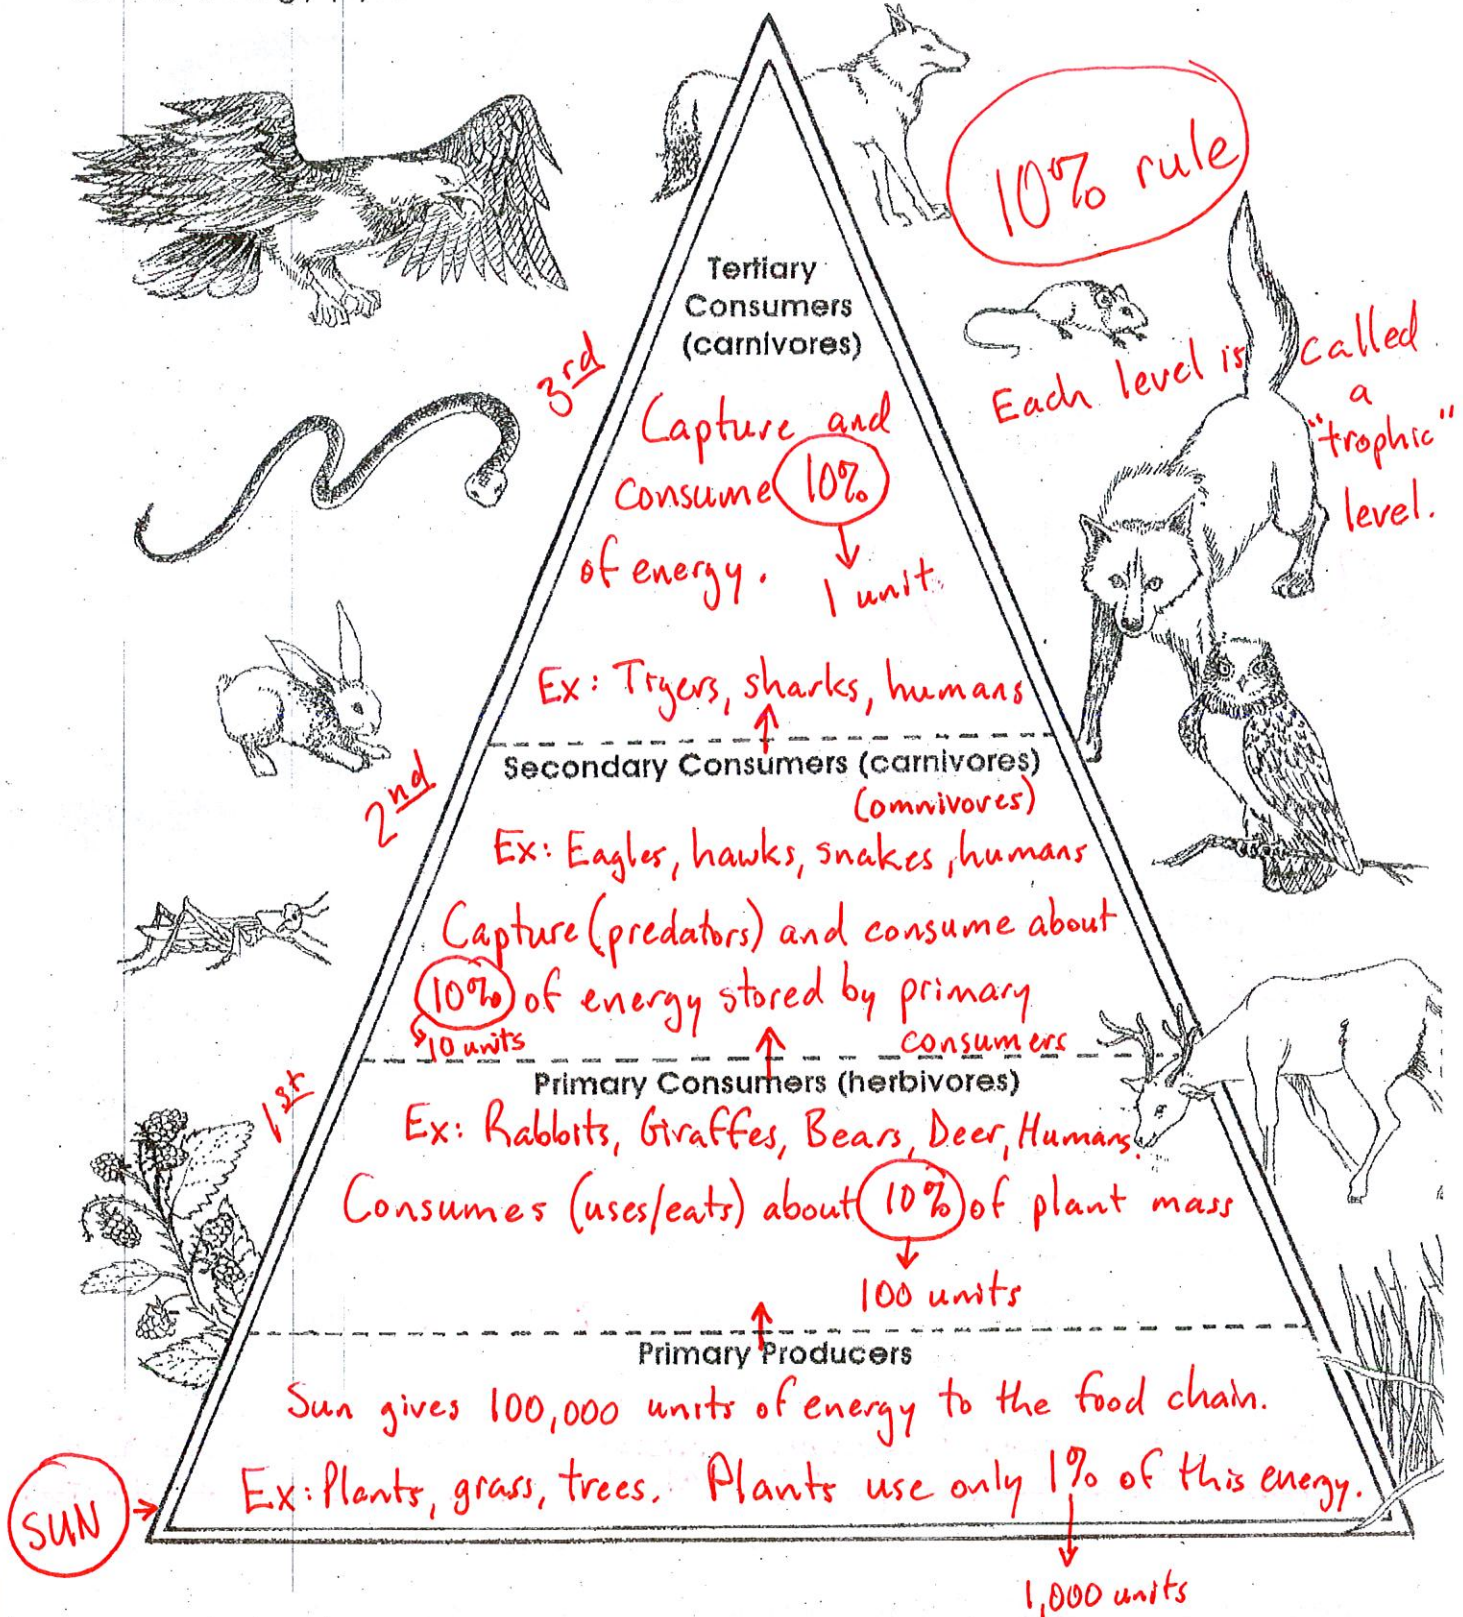 10% rule
Tertiary
Consumers
(carnivores)
3rd
Each level is called
a
"trophic"
level.
Capture and
consume 10%
of energy. 1 unit
Ex: Tigers, sharks, humans
Secondary Consumers (carnivores)
(omnivores)
2nd
Ex: Eagles, hawks, snakes, humans
Capture (predators) and consume about
10% of energy stored by primary
10 units consumers
Primary Consumers (herbivores)
1st
Ex: Rabbits, Giraffes, Bears, Deer, Humans.
Consumes (uses/eats) about 10% of plant mass
100 units
Primary Producers
Sun gives 100,000 units of energy to the food chain.
SUN
Ex: Plants, grass, trees. Plants use only 1% of this energy.
1,000 units